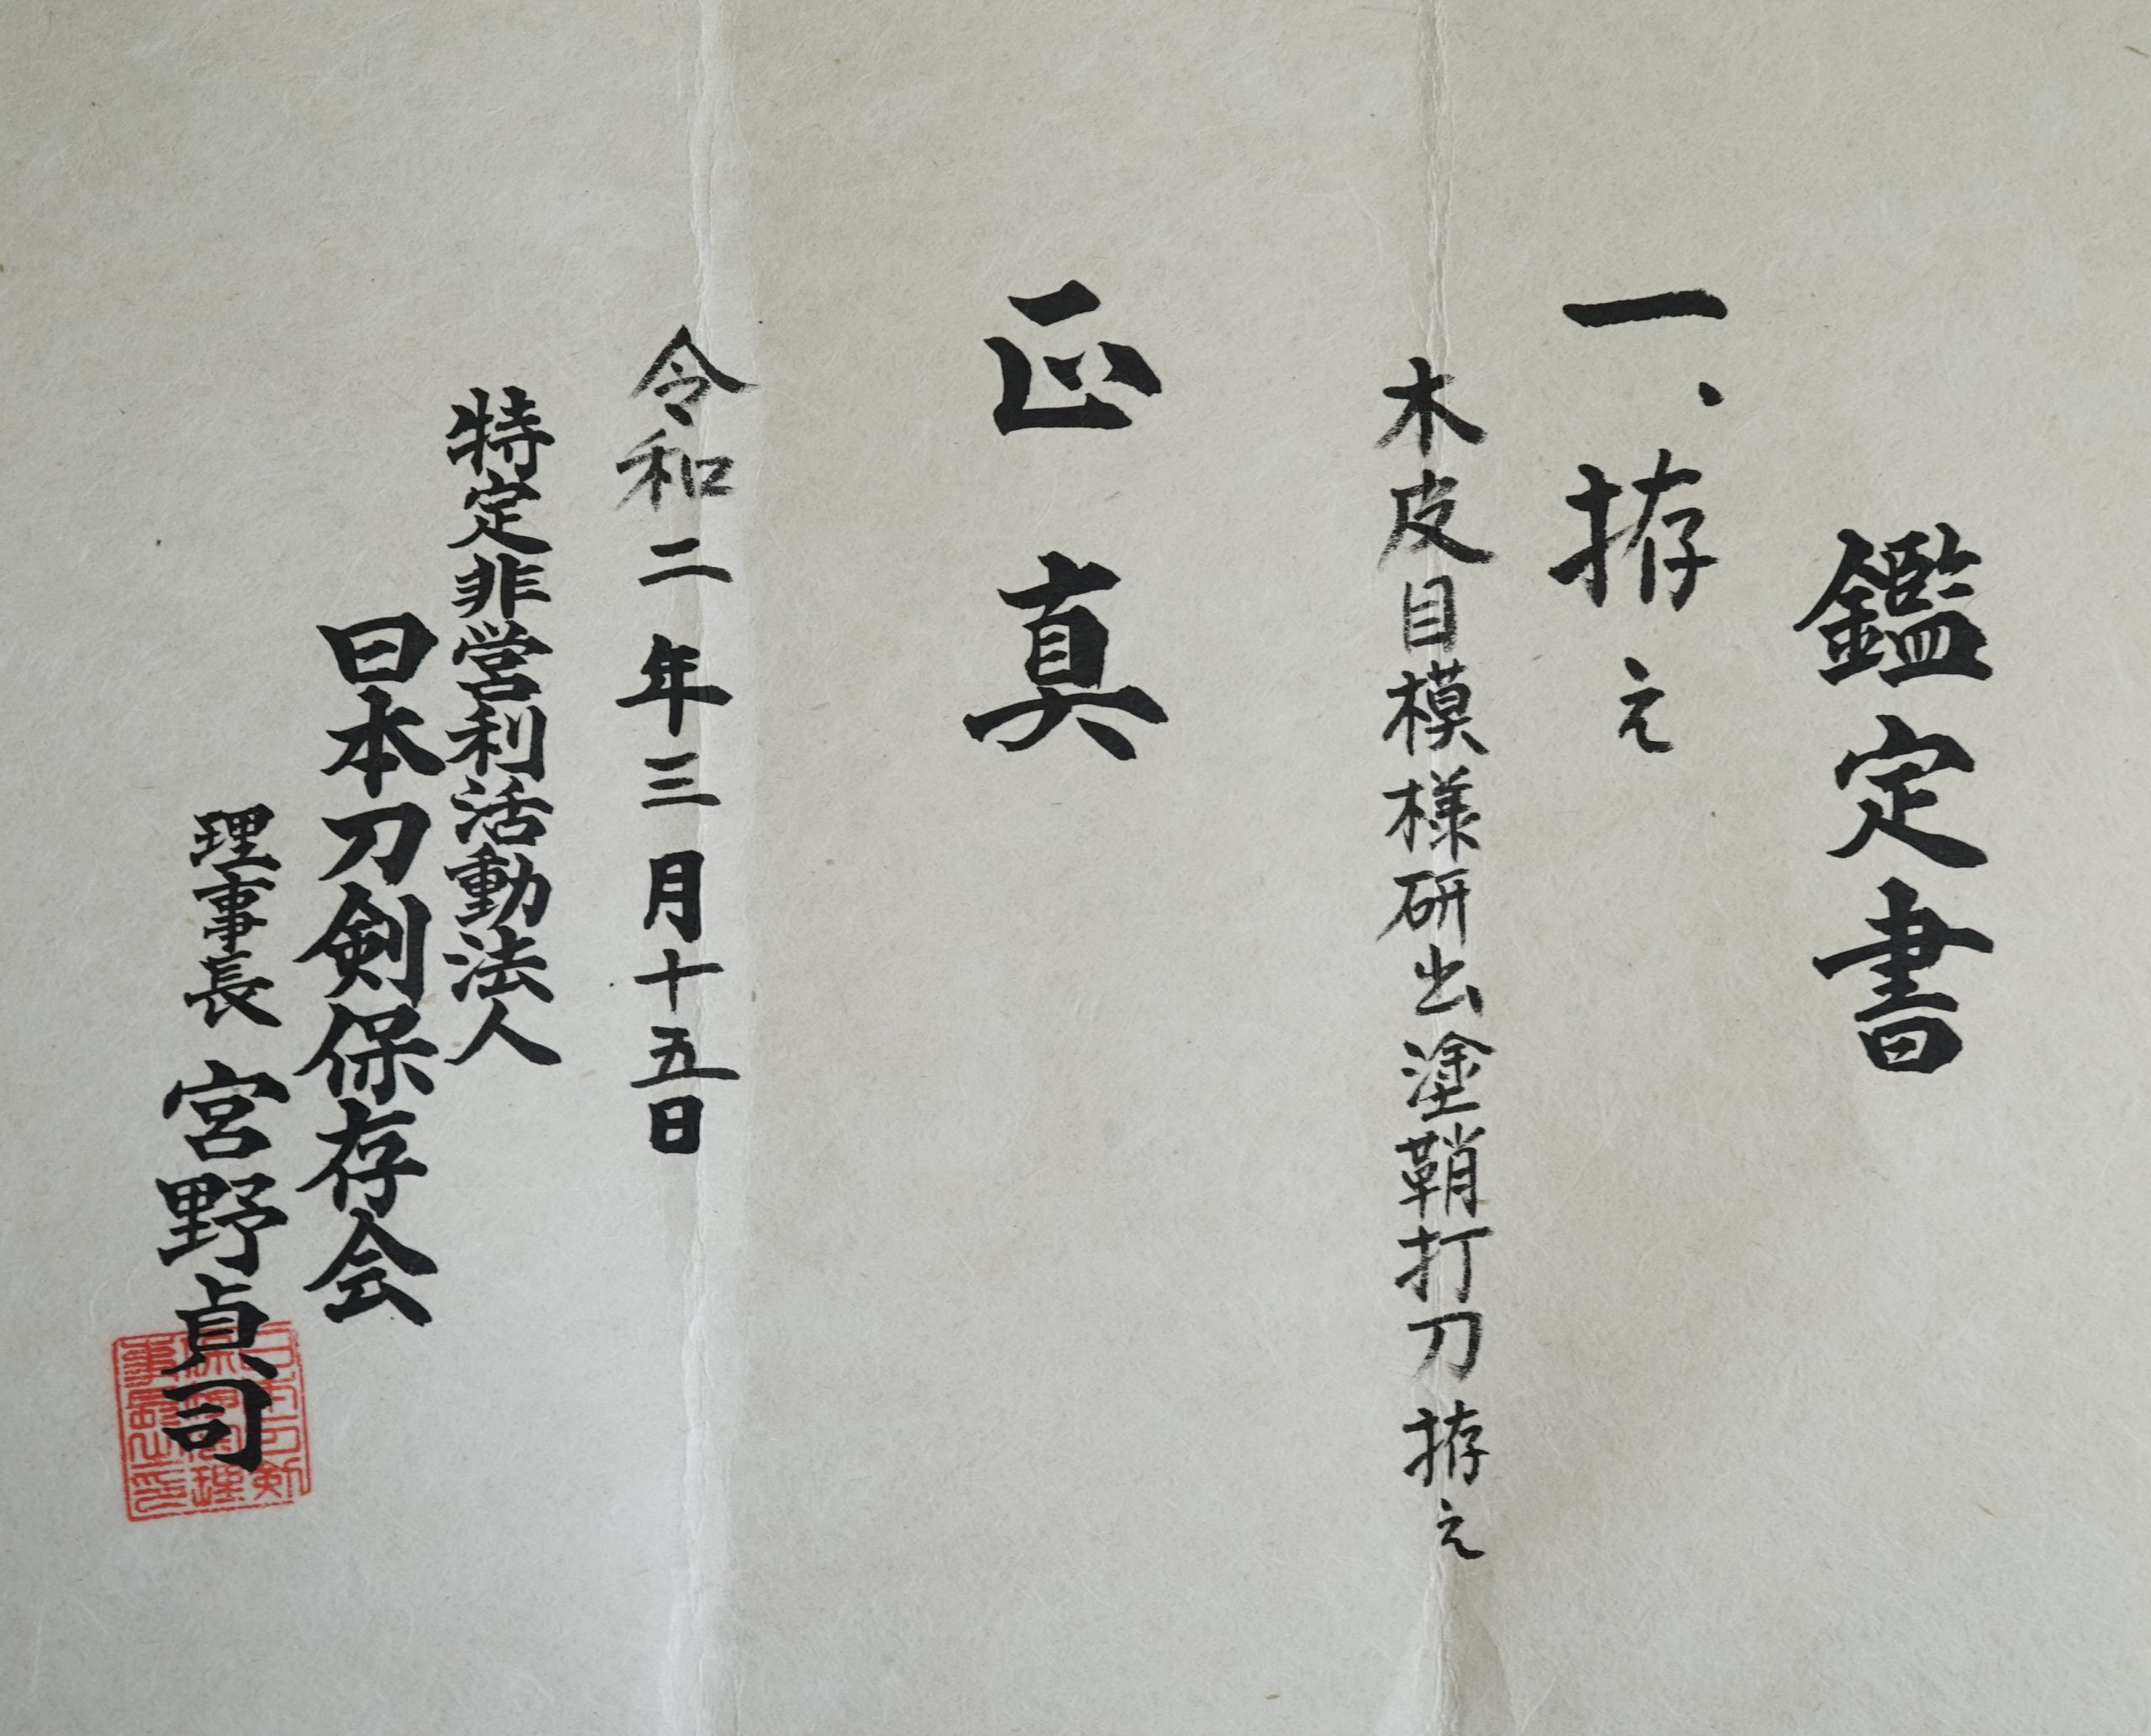 鑑定書
一、拵え
木皮目模様研出塗鞘打刀拵え
正真
令和二年三月十五日
特定非営利活動法人
日本刀剣保存会
理事長 宮野貞司